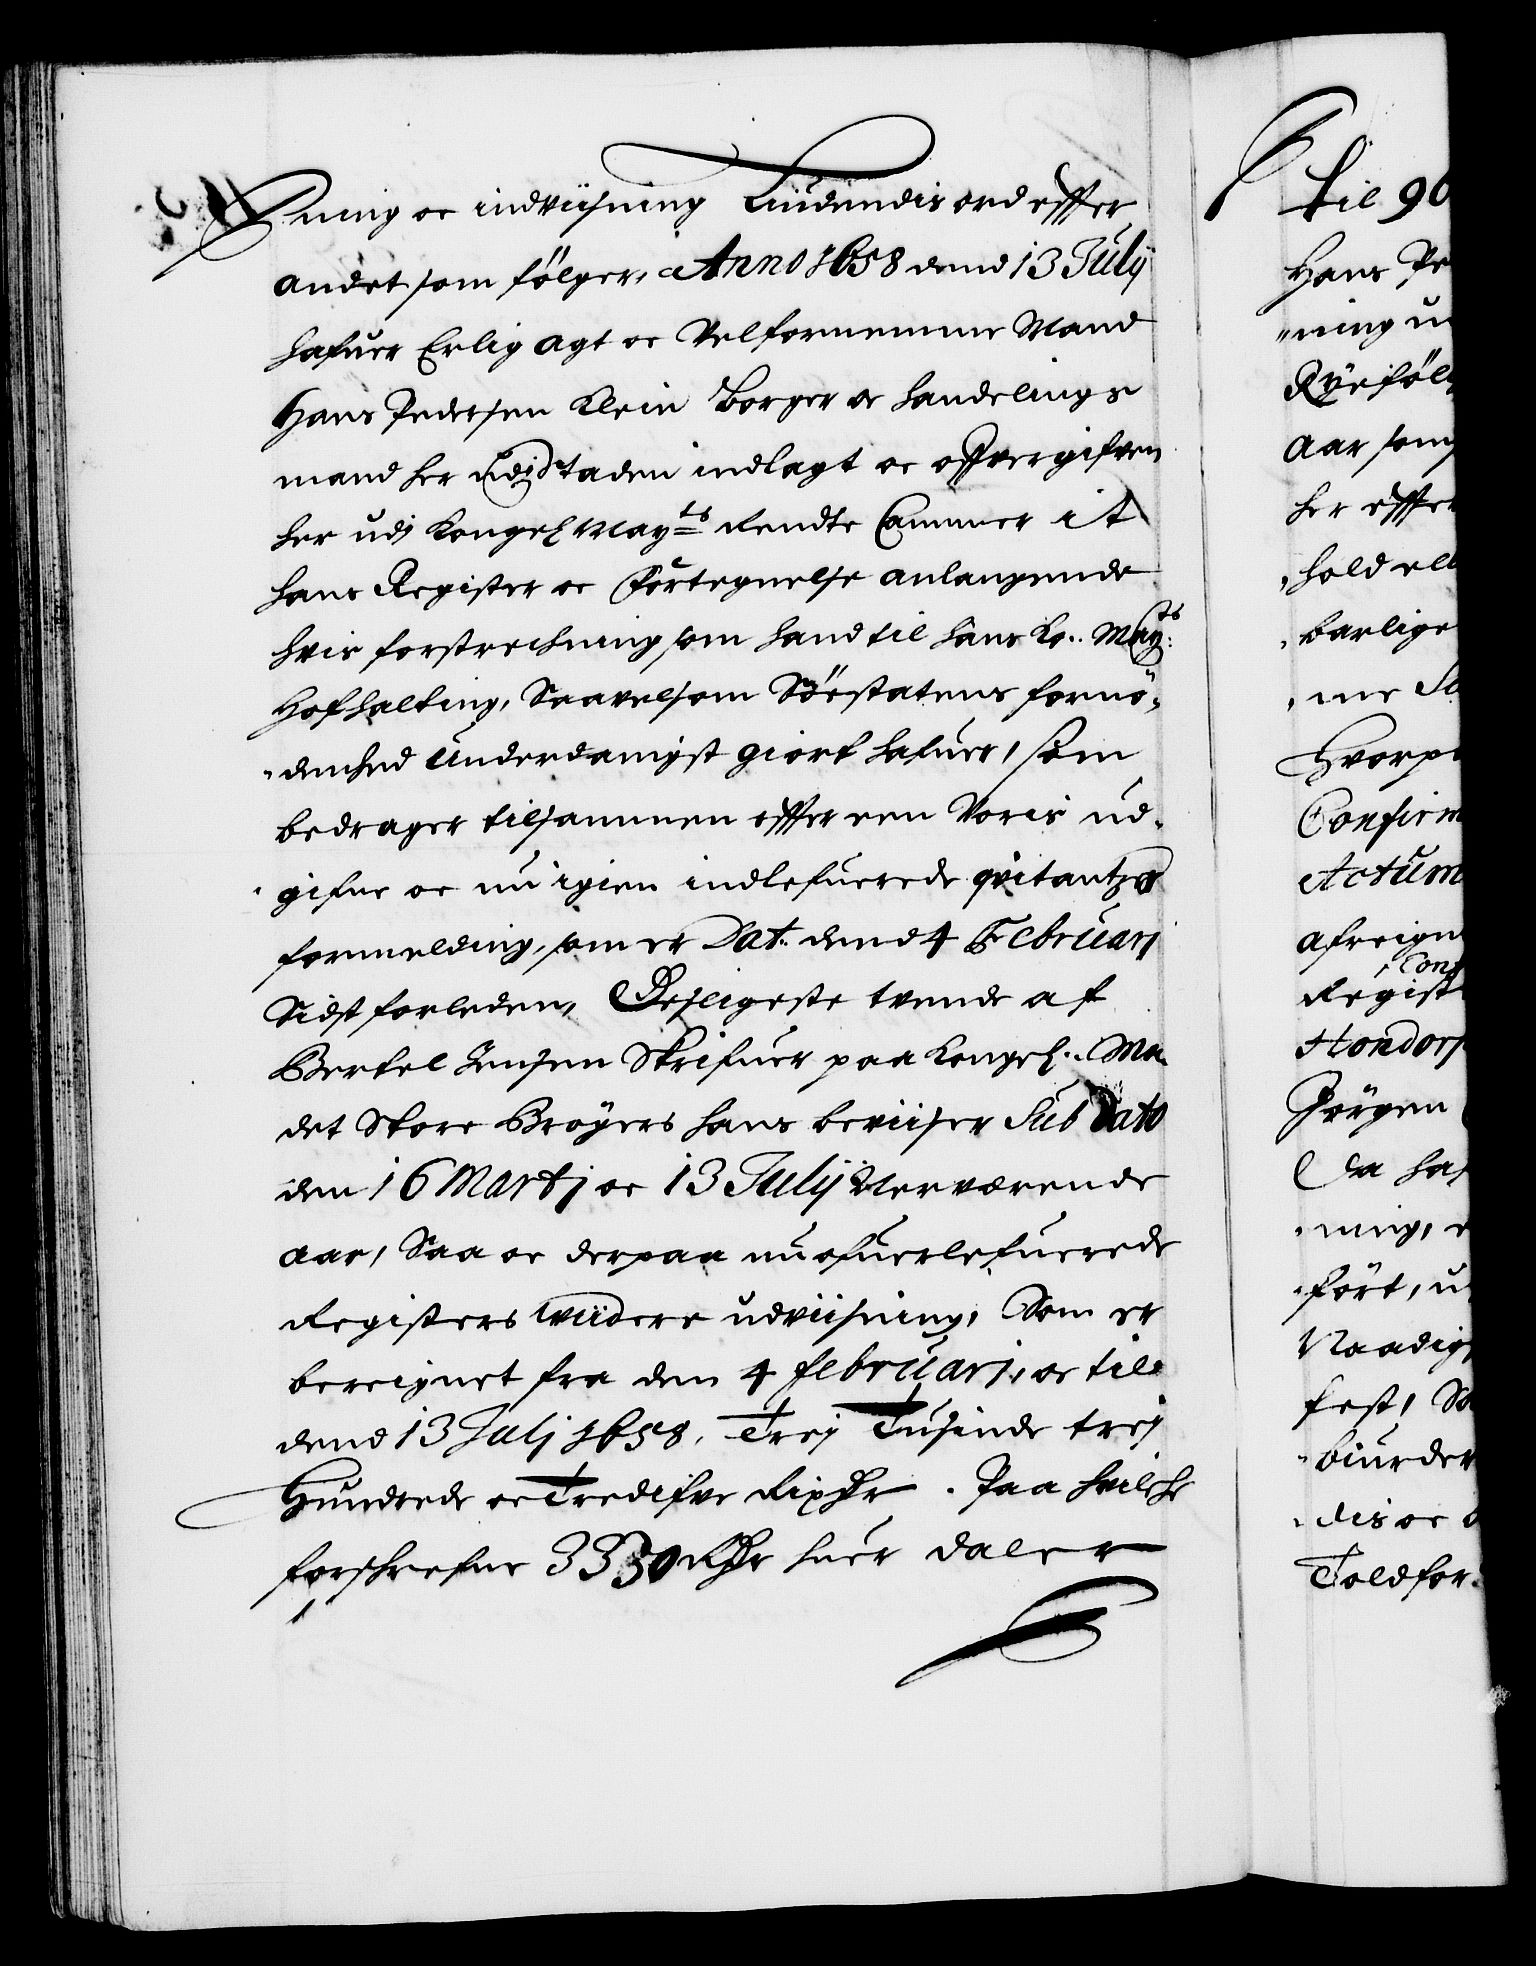 ning oc indviisning Liudendis ord effter
andet som fölger, Anno 1658 dend 13 Julÿ
hafuer Erlig agt oc Velfornemme Mand
Hans Pedersen Klein Borger oc handelings
mand her udi Staden indlagt oc offvergifven
her udj Kongel Mayts Rendte Cammer it
hans Register oc Fortegnelse anlangende
hvis forstrechning som hand til hans Ko. Mayts:
Hofhalting, Saavelsom Söestatens fornö-
denhed Underdanigst giort hafuer, som
bedrager tilsammen effter een Voris ud-
gifne oc nu igien indlefuerede qvitantzes
formelding, som er Dat. dend 4 Februarj
Sidst forleden, Desligeste tvende af
Bertel Jensen Skrifuer paa Kongel. Ma.
det Store Brÿgers hans beviiser Sub Dato
den 16 Martj oc 13 Julÿ Nerværende
aar, Saa oc derpaa nu ofuerlefuerede
Registers widere udviisning, Som er
bereignet fra den 4 februarj, oc til
dend 13 Julj 1658, Trej Tusinde trej
Hundrede oc Tredifve Rixdr. Paa hvilche
forschrefne 3330 Rdr huer daler
til 90
Hans Pe
ning u
Rÿefölc
aar som
her effter
hold ell
barlige
me
Hvorpaa
Confirm
Actum
afreign
Regist
Hondorf
Jörgen
Da haf
ning, e
fört, u
Naadigs
fest, S
biurder
dis oc
Toldfor